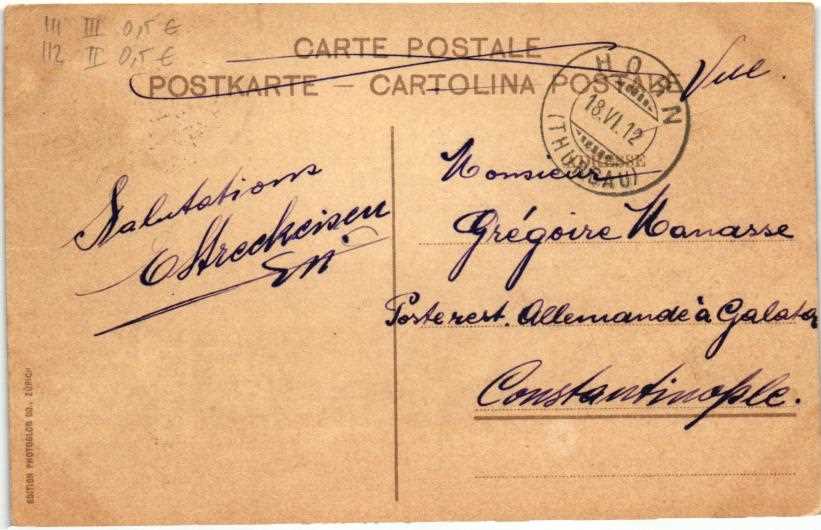 111 III 0,5 €
112 II 0,5 €
CARTE POSTALE
POSTKARTE – CARTOLINA POSTALE
Vue.
HORN
18.VI.12
(THURGAU)
Salutations
EStreckeisen
Monsieur
Grégoire Manasse
Poste rest. Allemande à Galata
Constantinople.
EDITION PHOTOGLOB CO., ZÜRICH